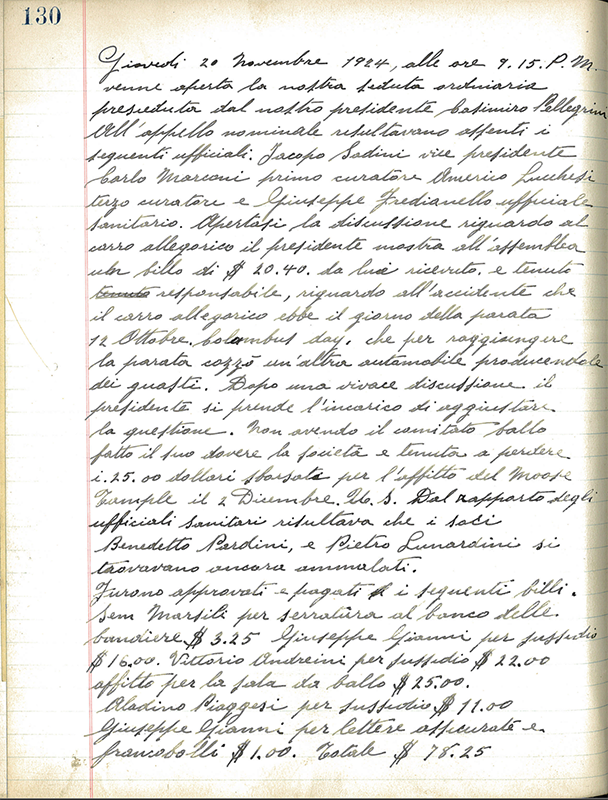 130
Giovedi 20 Novembre 1924, alle ore 9.15. P.M.
venne aperta la nostra seduta ordinaria
presieduta dal nostro presidente Casimiro Pellegrini
All'appello nominale risultavano assenti i
seguenti ufficiali. Jacopo Sodini vice presidente
Carlo Marconi primo curatore Americo Lucchesi
terzo curatore e Giuseppe Fredianello ufficiale
sanitario. Apertasi la discussione riguardo al
carro allegorico il presidente mostra all'assemblea
un billo di $ 20.40. da lui ricevuto. e tenuto
tenuto responsabile, riguardo all'accidente che
il carro allegorico ebbe il giorno della parata
12 Ottobre. Columbus day. che per raggiungere
la parata cozzò un'altra automobile producendole
dei guasti. Dopo una vivace discussione il
presidente si prende l'incarico di aggiustare
la questione. Non avendo il comitato ballo
fatto il suo dovere la società e tenuta a perdere
i. 25.00 dollari sborsati per l'affitto del Moose
Tample il 2 Dicembre. Dal rapporto degli
ufficiali sanitari risultava che i soci
Benedetto Pardini, e Pietro Lunardini si
trovavano ancora ammalati.
Furono approvati e pagati i seguenti billi.
Sem Marsili per serratura al banco delle
bandiere $ 3.25 Giuseppe Gianni per sussidio
$ 16.00. Vittorio Andreini per sussidio $ 22.00
affitto per la sala da ballo $ 25.00.
Aladino Piaggesi per sussidio $ 11.00
Giuseppe Gianni per lettere assicurate e
francobolli $ 1.00. Totale $ 78.25